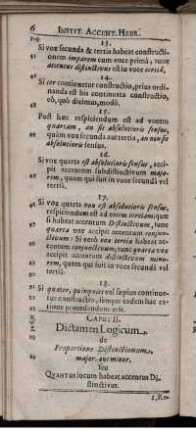 6 INSTIT. ACCENT. HEBR.
13.
Si vox secunda & tertia habeat constructi-
onem imparem cum voce primâ, tunc
accentus distinctivus est in voce tertiâ.
14.
Si ter continuetur constructio, prius ordi-
nanda est bis continuata constructio,
eò, quô diximus, modô.
15.
Post hæc respiciendum est ad vocem
quartam, an sit absolutoria sensus,
quàm vox secunda aut tertia, an non sit
absolutoria sensus.
16.
Si vox quarta est absolutoria sensus, accipit
accentum subdistinctivum majo-
rem, quàm qui fuit in voce secundâ vel
tertiâ.
17.
Si vox quarta non est absolutoria sensus,
respiciendum est ad vocem tertiam: quæ
si habeat accentum Distinctivum, tunc
quarta vox accipit accentum conjun-
ctivum: Si verò vox tertia habeat ac-
centum conjunctivum, tunc quarta vox
accipit accentum distinctivum mino-
rem, quàm qui fuit in voce secundâ vel
tertiâ.
18.
Si quater, quinquies vel sæpius continue-
tur constructio, semper eadem hac ra-
tione procedendum est.
CAPUT II.
Dictamen Logicum,
de
Proportione Distinctionum,
major. aut minor.
seu
QVANTUS locum habeat accentus Di-
stinctivus.